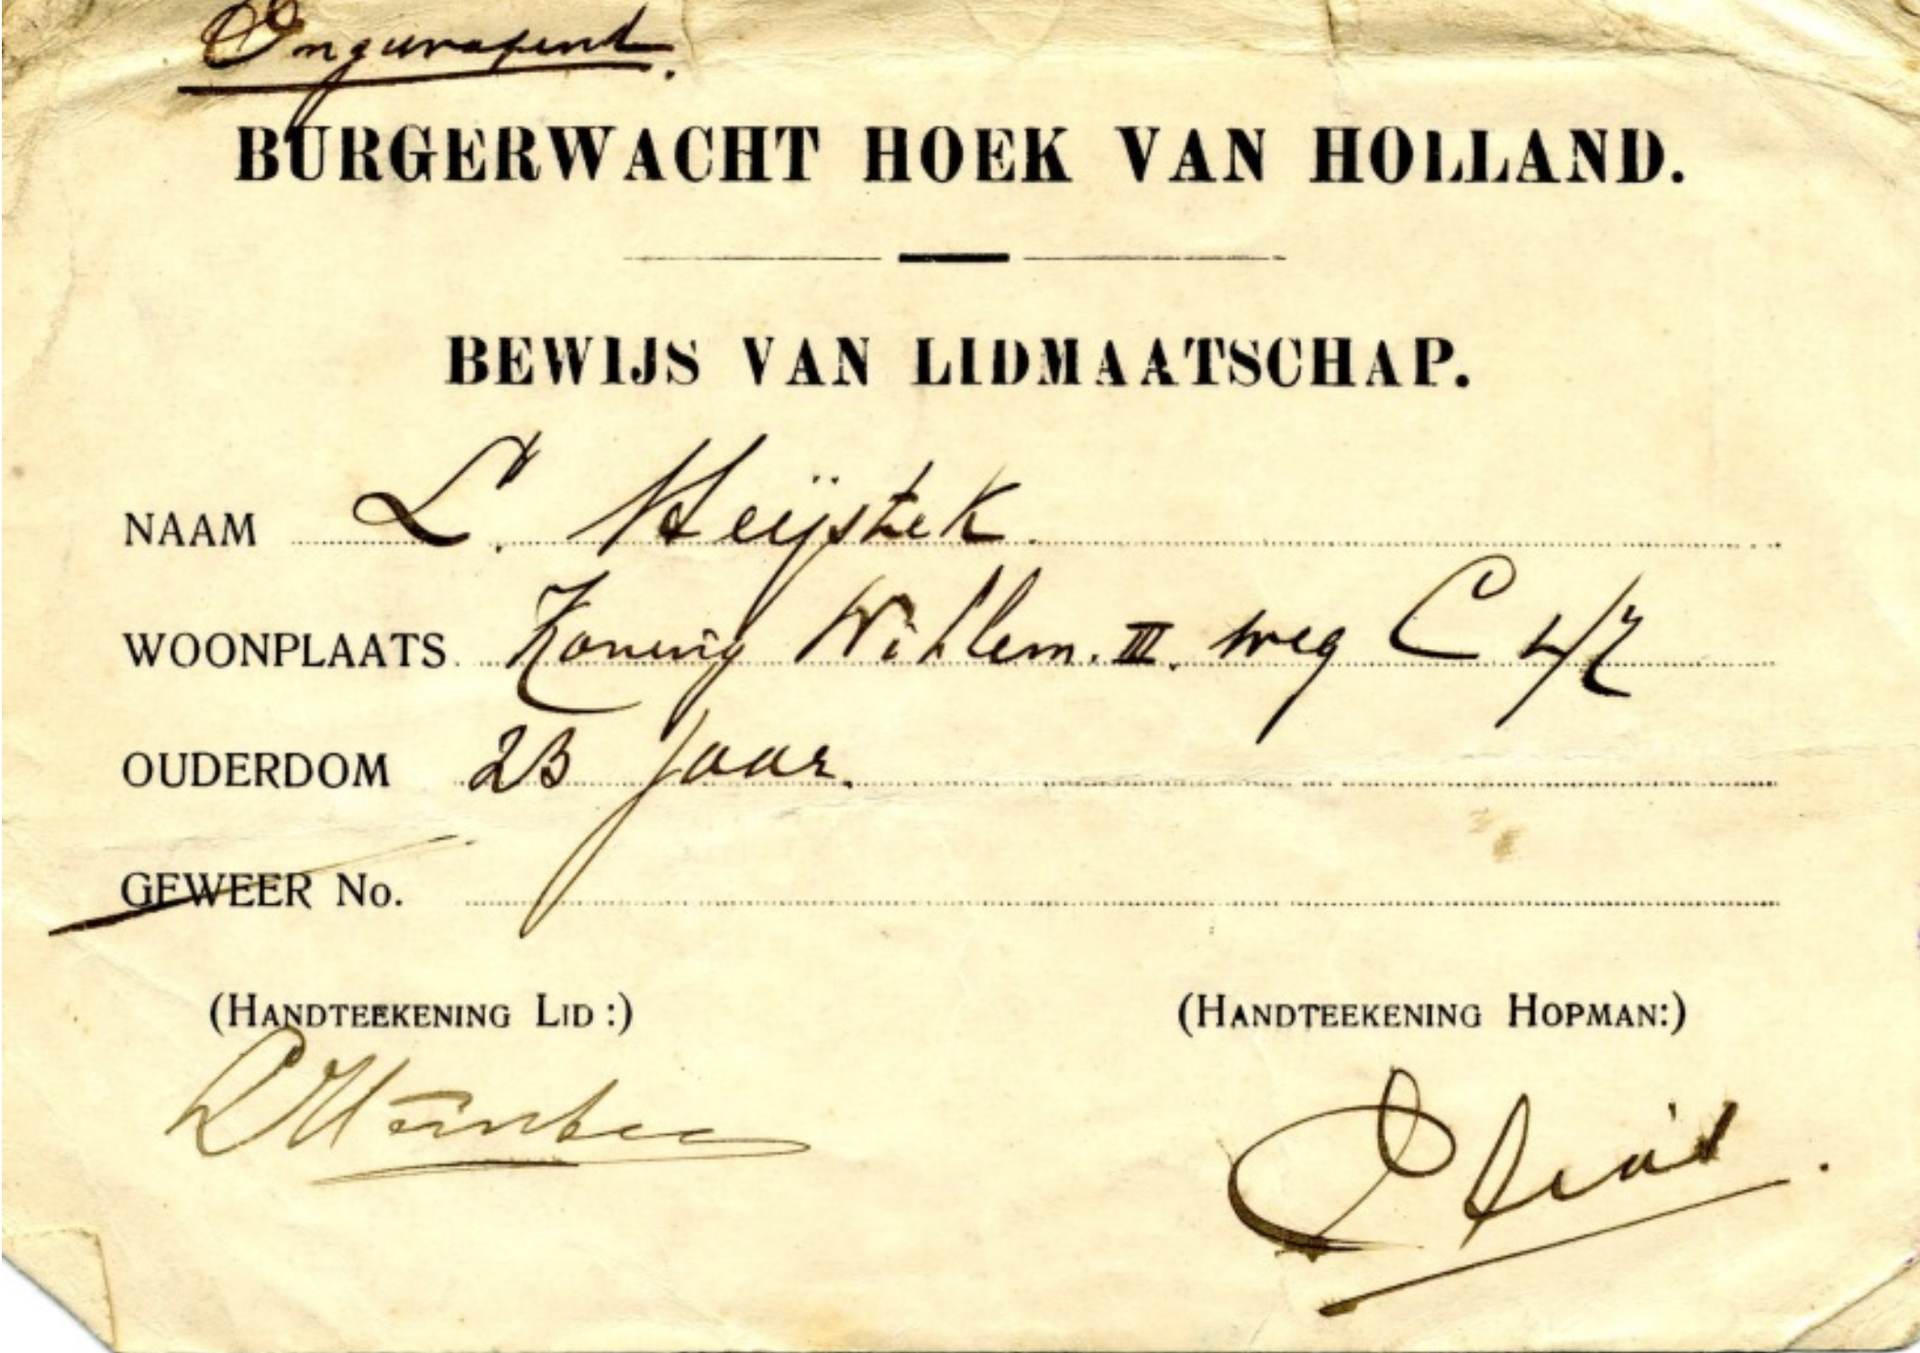 Ongewapend.
BURGERWACHT HOEK VAN HOLLAND.
BEWIJS VAN LIDMAATSCHAP.
NAAM L. Heijstek.
WOONPLAATS Koning Willem. III. weg C 47
OUDERDOM 23 jaar.
GEWEER No.
(HANDTEEKENING LID:) (HANDTEEKENING HOPMAN:)